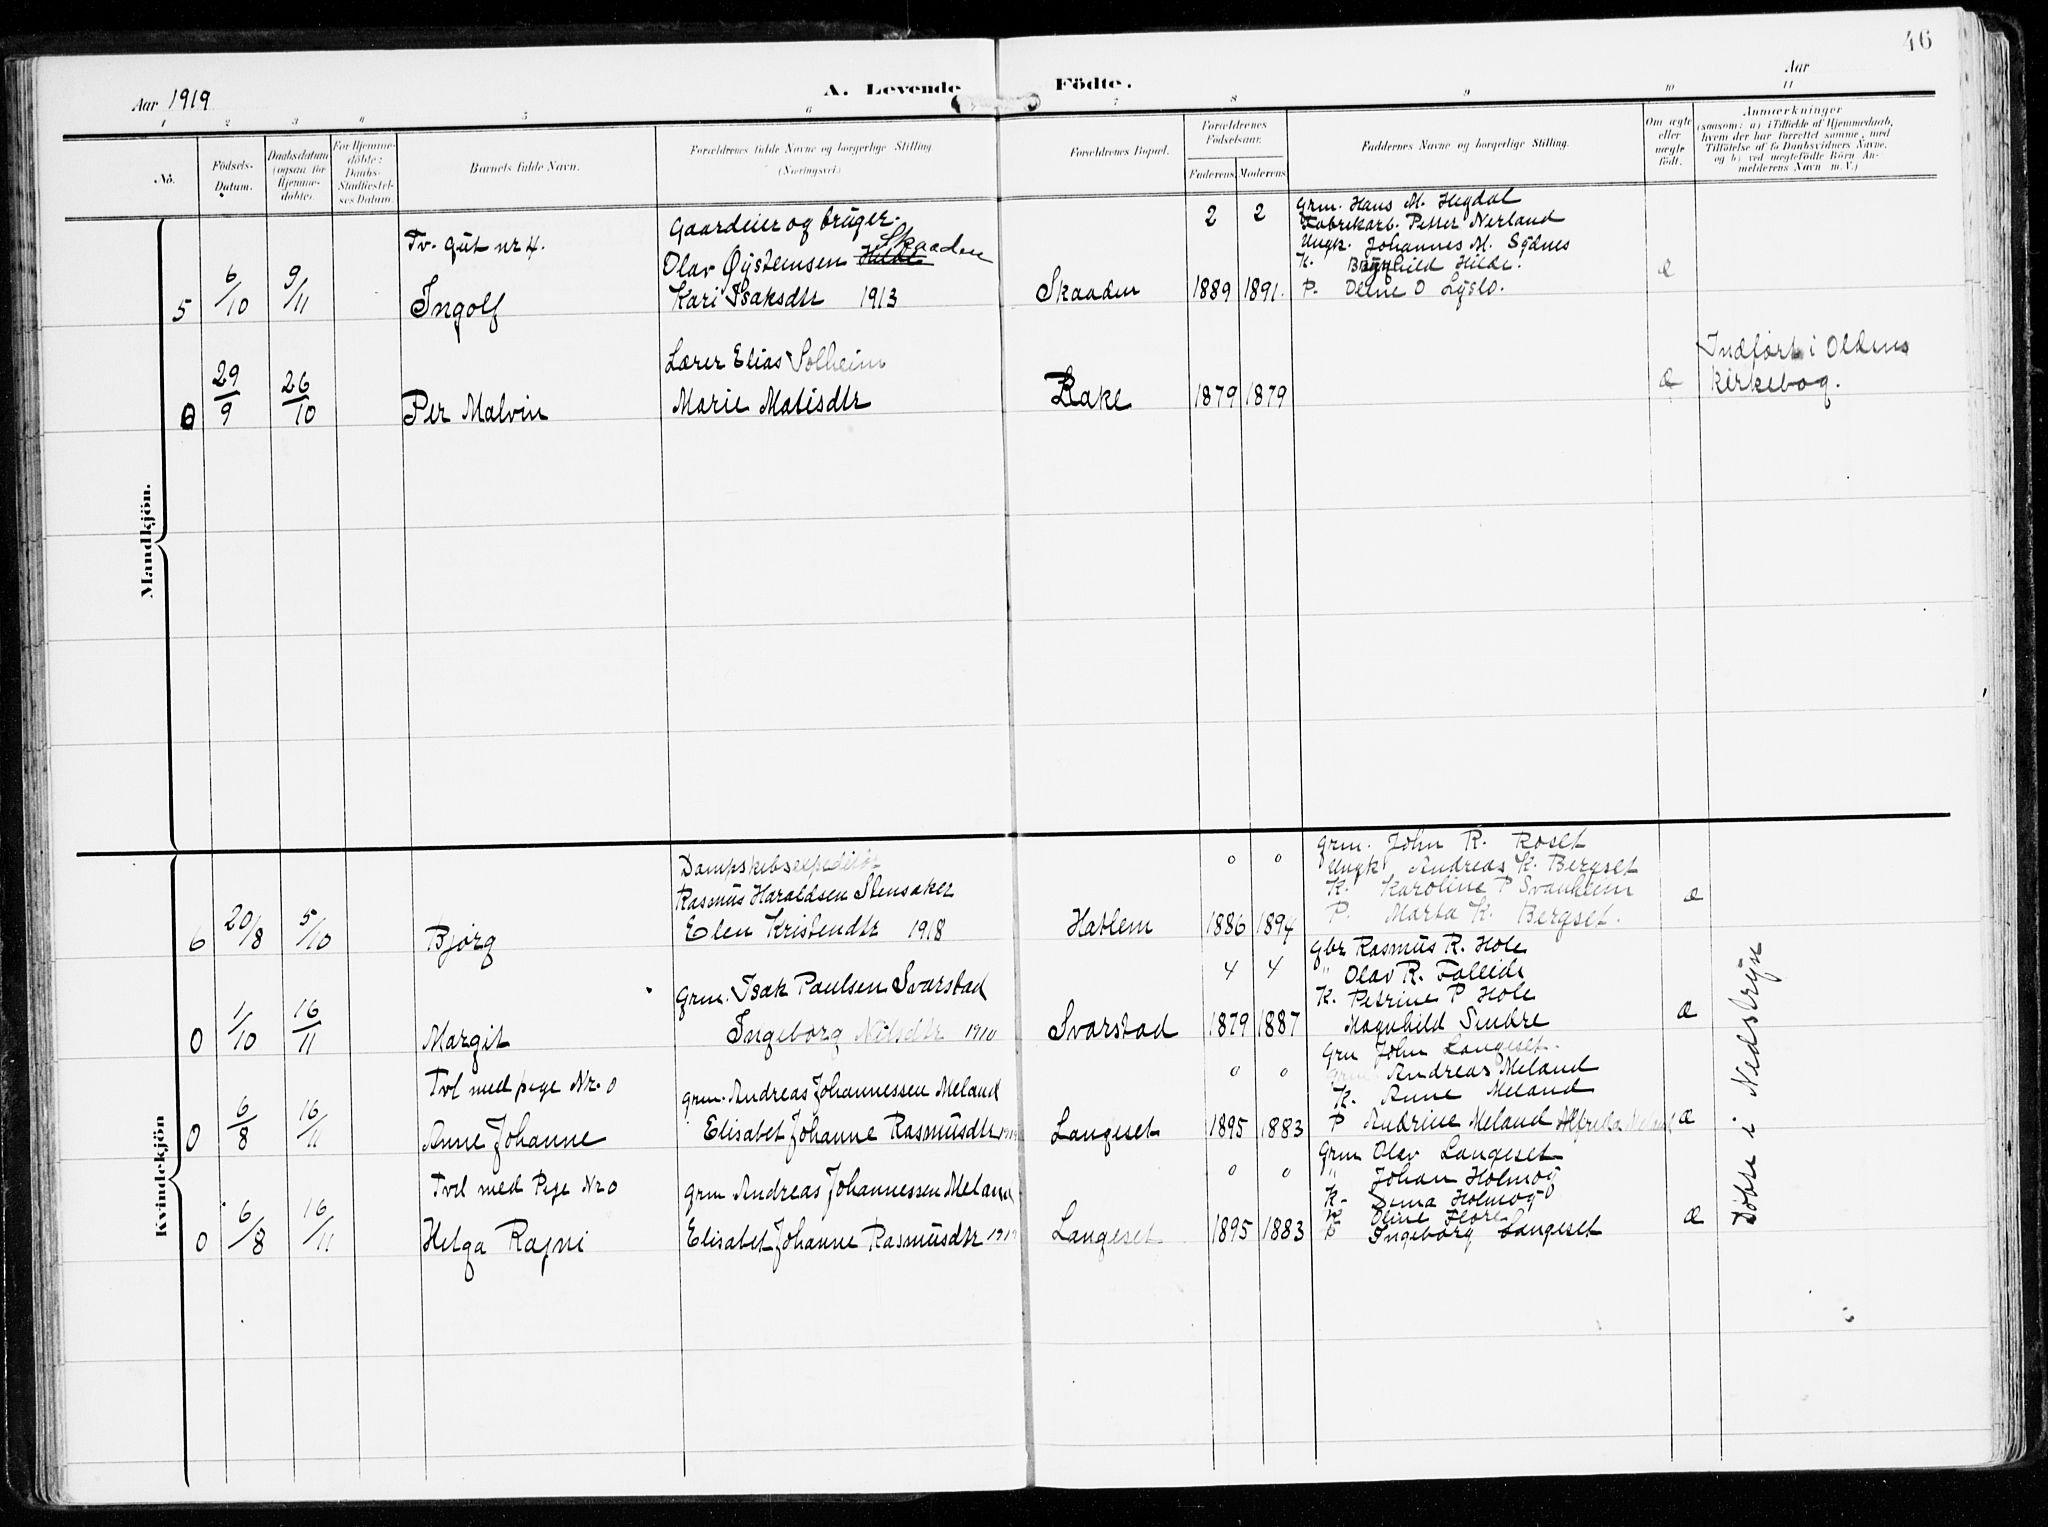 46
Aar 1919
A. Levende Födte.
Aar
1 2 3 4 5 6 7 8 9 10 11
Nô.
Födsels-Datum.
Daabsdatum (ogsaa for Hjemme-döbte).
For Hjemme-döbte: Daabs-Stadfæstel-ses Datum.
Barnets fulde Navn.
Forældrenes fulde Navne og borgerlige Stilling
(Næringsvei.)
Forældrenes Bopæl.
Forældrenes Födselsaar.
Faderens. Moderens.
Faddernes Navne og borgerlige Stilling.
Om ægte eller uægte födt.
Anmærkninger
(saasom: a) i Tilfælde af Hjemmedaab, hvem der har forrettet samme, med Tilföielse af to Daabsvidners Navne, og b) ved uægtefödte Börn An-melderens Navn m.V.)
Mandkjön.
Tv. gut nr 4.
5 6/10 9/11 Ingolf
Gaardeier og bruger.
Skaaden
Olav Øystemsen Hilde
Kari Isaksdtr 1913
Skaaden
2 2
1889 1891.
Grm. Hans M. Hegdal
Fabrikarb. Petter Nerland
Ungk. Johannes M. Sydnes
K. Brynhild Hilde.
P. Oline O Lyslo.
Æ
0 29/9 26/10 Per Malvin
Lærer Elias Solheim
Marie Matisdtr
Rake
1879 1879
Æ
Indført i Oldens
Kirkebog.
Kvindekjön
6 20/8 5/10 Bjørg
Dampskibsexpeditør
Rasmus Haraldsen Stensaker
Elen Kristendtr 1918
Hatlem
0 0
1886 1894
Grm. John R. Roset
Ungk. Andreas K. Bergset
K. Karoline P Svanheim
P. Marta K. Bergset.
Æ
0 1/10 16/11 Margit
Grm. Isak Paulsen Svarstad
Ingeborg Nilsdtr 1910
Svarstad
4 4
1879 1887
Gbr Rasmus R. Hole
" Olav R. Faleide
K. Petrine P Hole
Magnhild Sindre
Æ
Tvl med pige Nr. 0
0 6/8 16/11 Anne Johanne
Grm. Andreas Johannessen Meland
Elisabet Johanne Rasmusdtr 1919
Langeset
0 0
1895 1883
Grm John Langeset.
Grm. Andreas Meland
K. Anne Meland
P Andrine Meland Alfrida Meland
Æ
Tvil med Pige Nr 0
0 6/8 16/11 Helga Ragni
Grm Andreas Johannessen Meland
Elisabet Johanne Rasmusdtr 1919
Langeset
0 0
1895 1883
Grm Olav Langeset
" Johan Holmøy
K. Sina Holmøy
K Oline Flore
P Ingeborg Langeset
Æ
Døbte i Nedstryn